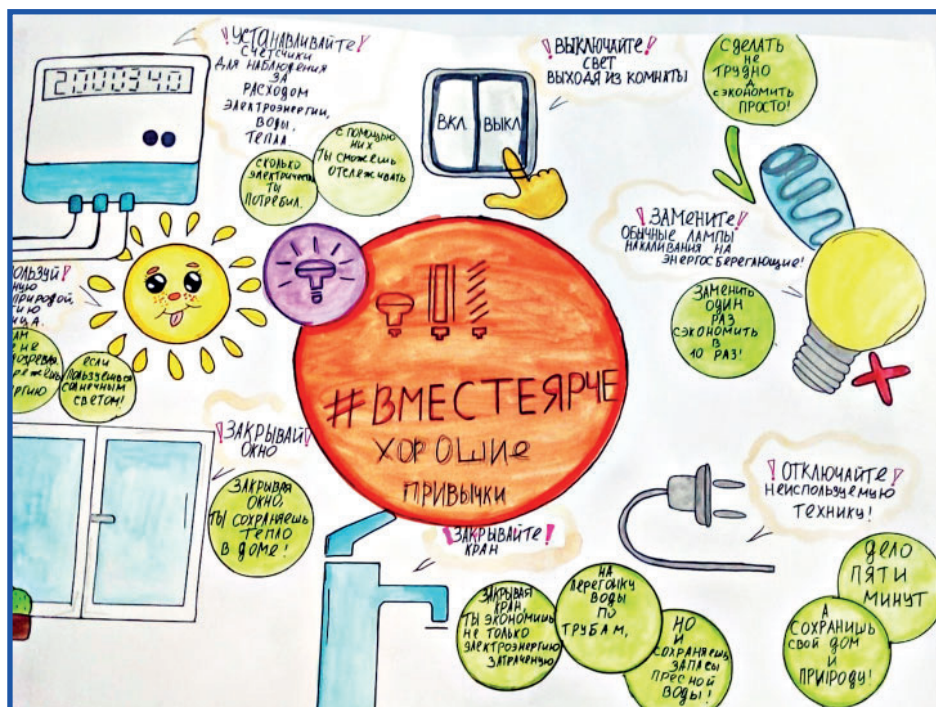 2000340
! УСТАНАВЛИВАЙТЕ !
СЧЕТЧИКИ
ДЛЯ НАБЛЮДЕНИЯ
ЗА
РАСХОДОМ
ЭЛЕКТРОЭНЕРГИИ,
ВОДЫ,
ТЕПЛА.
С ПОМОЩЬЮ
НИХ
ТЫ СМОЖЕШЬ
ОТСЛЕЖИВАТЬ
СКОЛЬКО
ТЫ
ПОТРЕБИЛ.
ВКЛ. ВЫКЛ
! ВЫКЛЮЧАЙТЕ !
СВЕТ
ВЫХОДЯ ИЗ КОМНАТЫ
СДЕЛАТЬ
НЕ
ТРУДНО
А
СЭКОНОМИТЬ
ПРОСТО!
! ЗАМЕНИТЕ !
ОБЫЧНЫЕ ЛАМПЫ
НАКАЛИВАНИЯ НА
ЭНЕРГОСБЕРЕГАЮЩИЕ!
ЗАМЕНИТЬ
ОДИН
РАЗ
СЭКОНОМИТЬ
В
10 РАЗ!
ПРИРОДОЙ,
ЕСЛИ
ПОЛЬЗУЕШЬСЯ
СОЛНЕЧНЫМ
СВЕТОМ!
#ВМЕСТЕЯРЧЕ
ХОРОШИЕ
ПРИВЫЧКИ
! ЗАКРЫВАЙ !
ОКНО
ЗАКРЫВАЯ
ОКНО,
ТЫ СОХРАНЯЕШЬ
ТЕПЛО
В ДОМЕ!
! ЗАКРЫВАЙТЕ !
КРАН
ЗАКРЫВАЯ
КРАН,
ТЫ ЭКОНОМИШЬ
НЕ ТОЛЬКО
ЭЛЕКТРОЭНЕРГИЮ
ЗАТРАЧЕНУЮ
НА
ПЕРЕГОНКУ
ВОДЫ
ПО
ТРУБАМ,
НО
И
СОХРАНЯЕШЬ
ЗАПАСЫ
ПРЕСНОЙ
ВОДЫ!
! ОТКЛЮЧАЙТЕ !
НЕИСПОЛЬЗУЕМУЮ
ТЕХНИКУ!
ДЕЛО
ПЯТИ
МИНУТ
А
СОХРАНИШЬ
СВОЙ ДОМ
И
ПРИРОДУ!